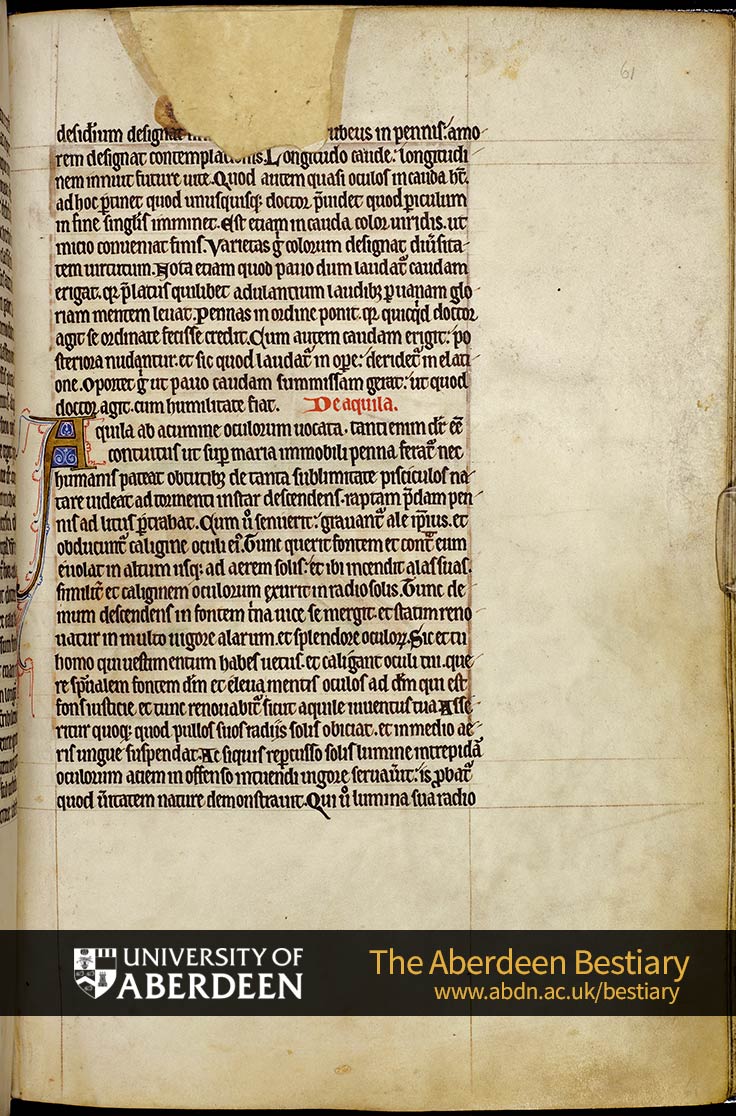 61
desid'ium designat ubeus in pennis: amo
rem designat contemplationis. Longitudo caude: longitudi
nem innuit future uite. Quod autem quasi oculos in cauda ht̅.
ad hoc p̲tinet quod unusquisq; doctor p̅uidet quod p̲iculum
in fine singlis imminet. Est etiam in cauda color uiridis. ut
inicio conueniat finis. Varietas g̊ colorum designat diu̅sita
tem uirtutum. Nota etiam quod pauo dum laudat᷑ caudam
erigat. qr p̅latus quilibet adulantium laudib; p̲ uanam glo
riam mentem leuat. Pennas in ordine ponit. qr quicq̇d doctor
agit se ordinate fecisse credit. Cum autem caudam erigit: po
steriora nudantur. et sic quod laudat᷑ in ope̅: deridet᷑ in elati
one. Oportet g̊ ut pauo caudam summissam gerat: ut quod
doctor agit. cum humilitate fiat. De aquila.
Aquila ab acumine oculorum uocata. tanti enim dr̅ e̅e̅
contuitus ut sup̲ maria immobili penna ferat᷑ nec
humanis pateat obtutib; de tanta sublimitate pisciculos na
tare uideat ad tormenti instar descendens. raptam p̅dam pen
nis ad litus p̲trahat. Cum u̅ senuerit: grauant᷑ ale ip̅ius. et
obducunt᷑ caligine oculi ei᷒. Tunc querit fontem et cont̅ eum
euolat in altum usq; ad aerem solis: et ibi incendit alas suas.
similit᷑ et caliginem oculorum exurit in radio solis. Tunc de
mum descendens in fontem t̅na uice se mergit. et statim reno
uatur in multo uigore alarum. et splendore oculoꝝ. Sic et tu
homo qui uestimentum habes uetus. et caligant oculi tui. que
re sp̅ualem fontem dn̅i et eleua mentis oculos ad dn̅m qui est
fons iusticie. et tunc renouabit᷑ sicut aquile iuuentus tua. Asse
ritur quoq; quod pullos suos radijs solis obiciat. et in medio ae
ris ungue suspendat. Ac siquis rep̲cusso solis lumine intrepidā
oculorum aciem in offenso intuendi uigore seruau̅it: is p̱bat᷑
quod u̅itatem nature demonstrauit. Qui u̅ lumina sua radio
UNIVERSITY OF
ABERDEEN
The Aberdeen Bestiary
www.abdn.ac.uk/bestiary